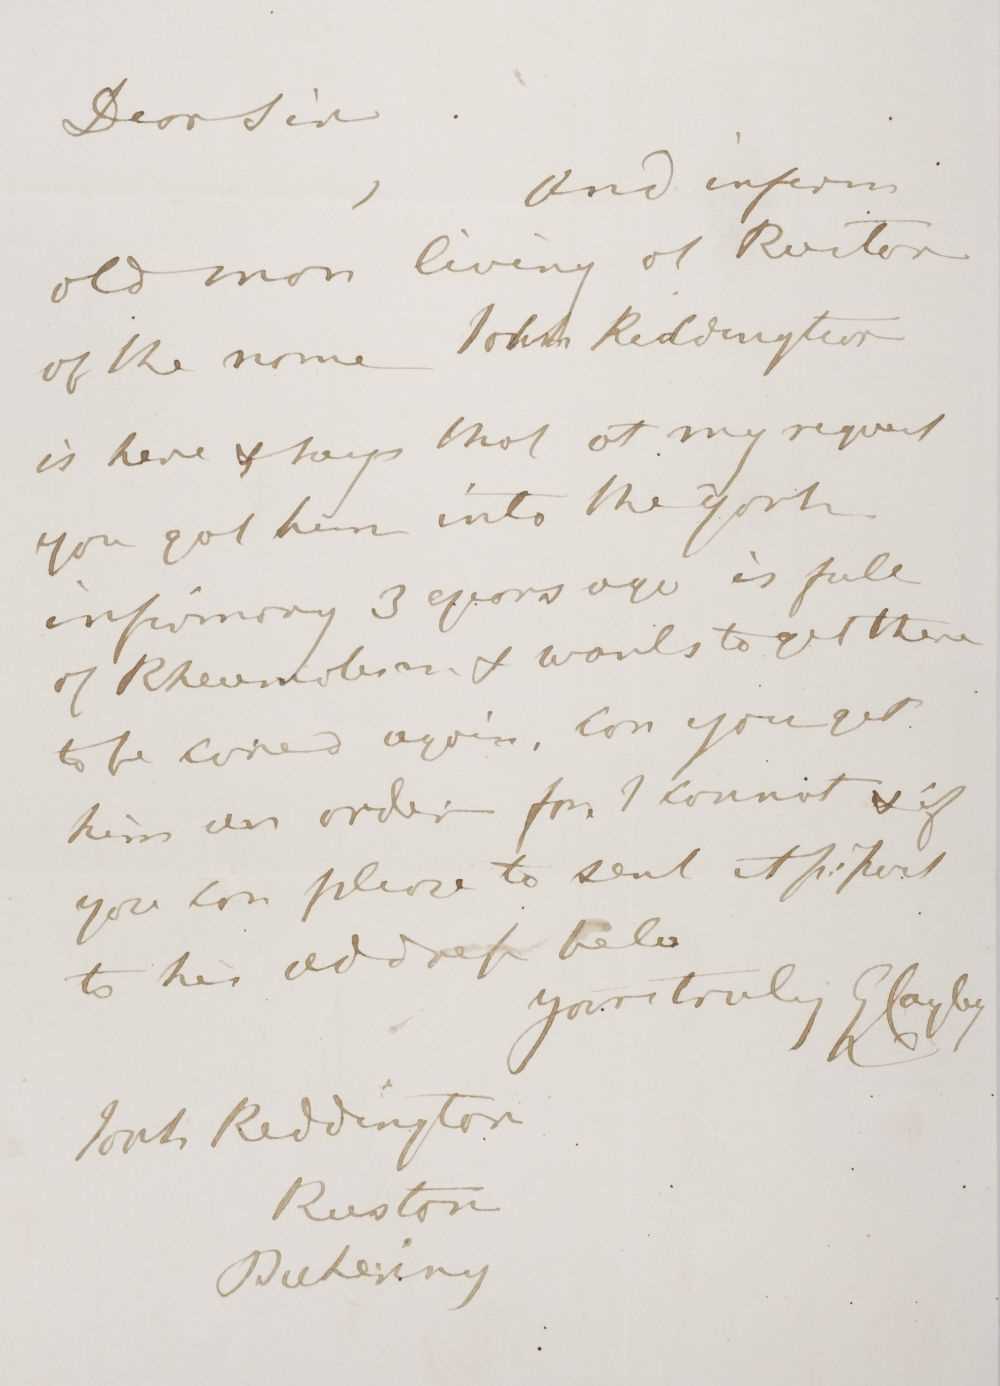 Dear Sir
, And infirm
old man living at Ruston
of the name John Reddington
is here & says that at my request
you got him into the York
infirmary 3 years ago is full
of Rheumatism & wants to get there
to be cured again, can you get
him an order for, I cannot & if
you can please to send it pr post
to his address belo
yours truly G Cayley
John Reddington
Ruston
Pickering